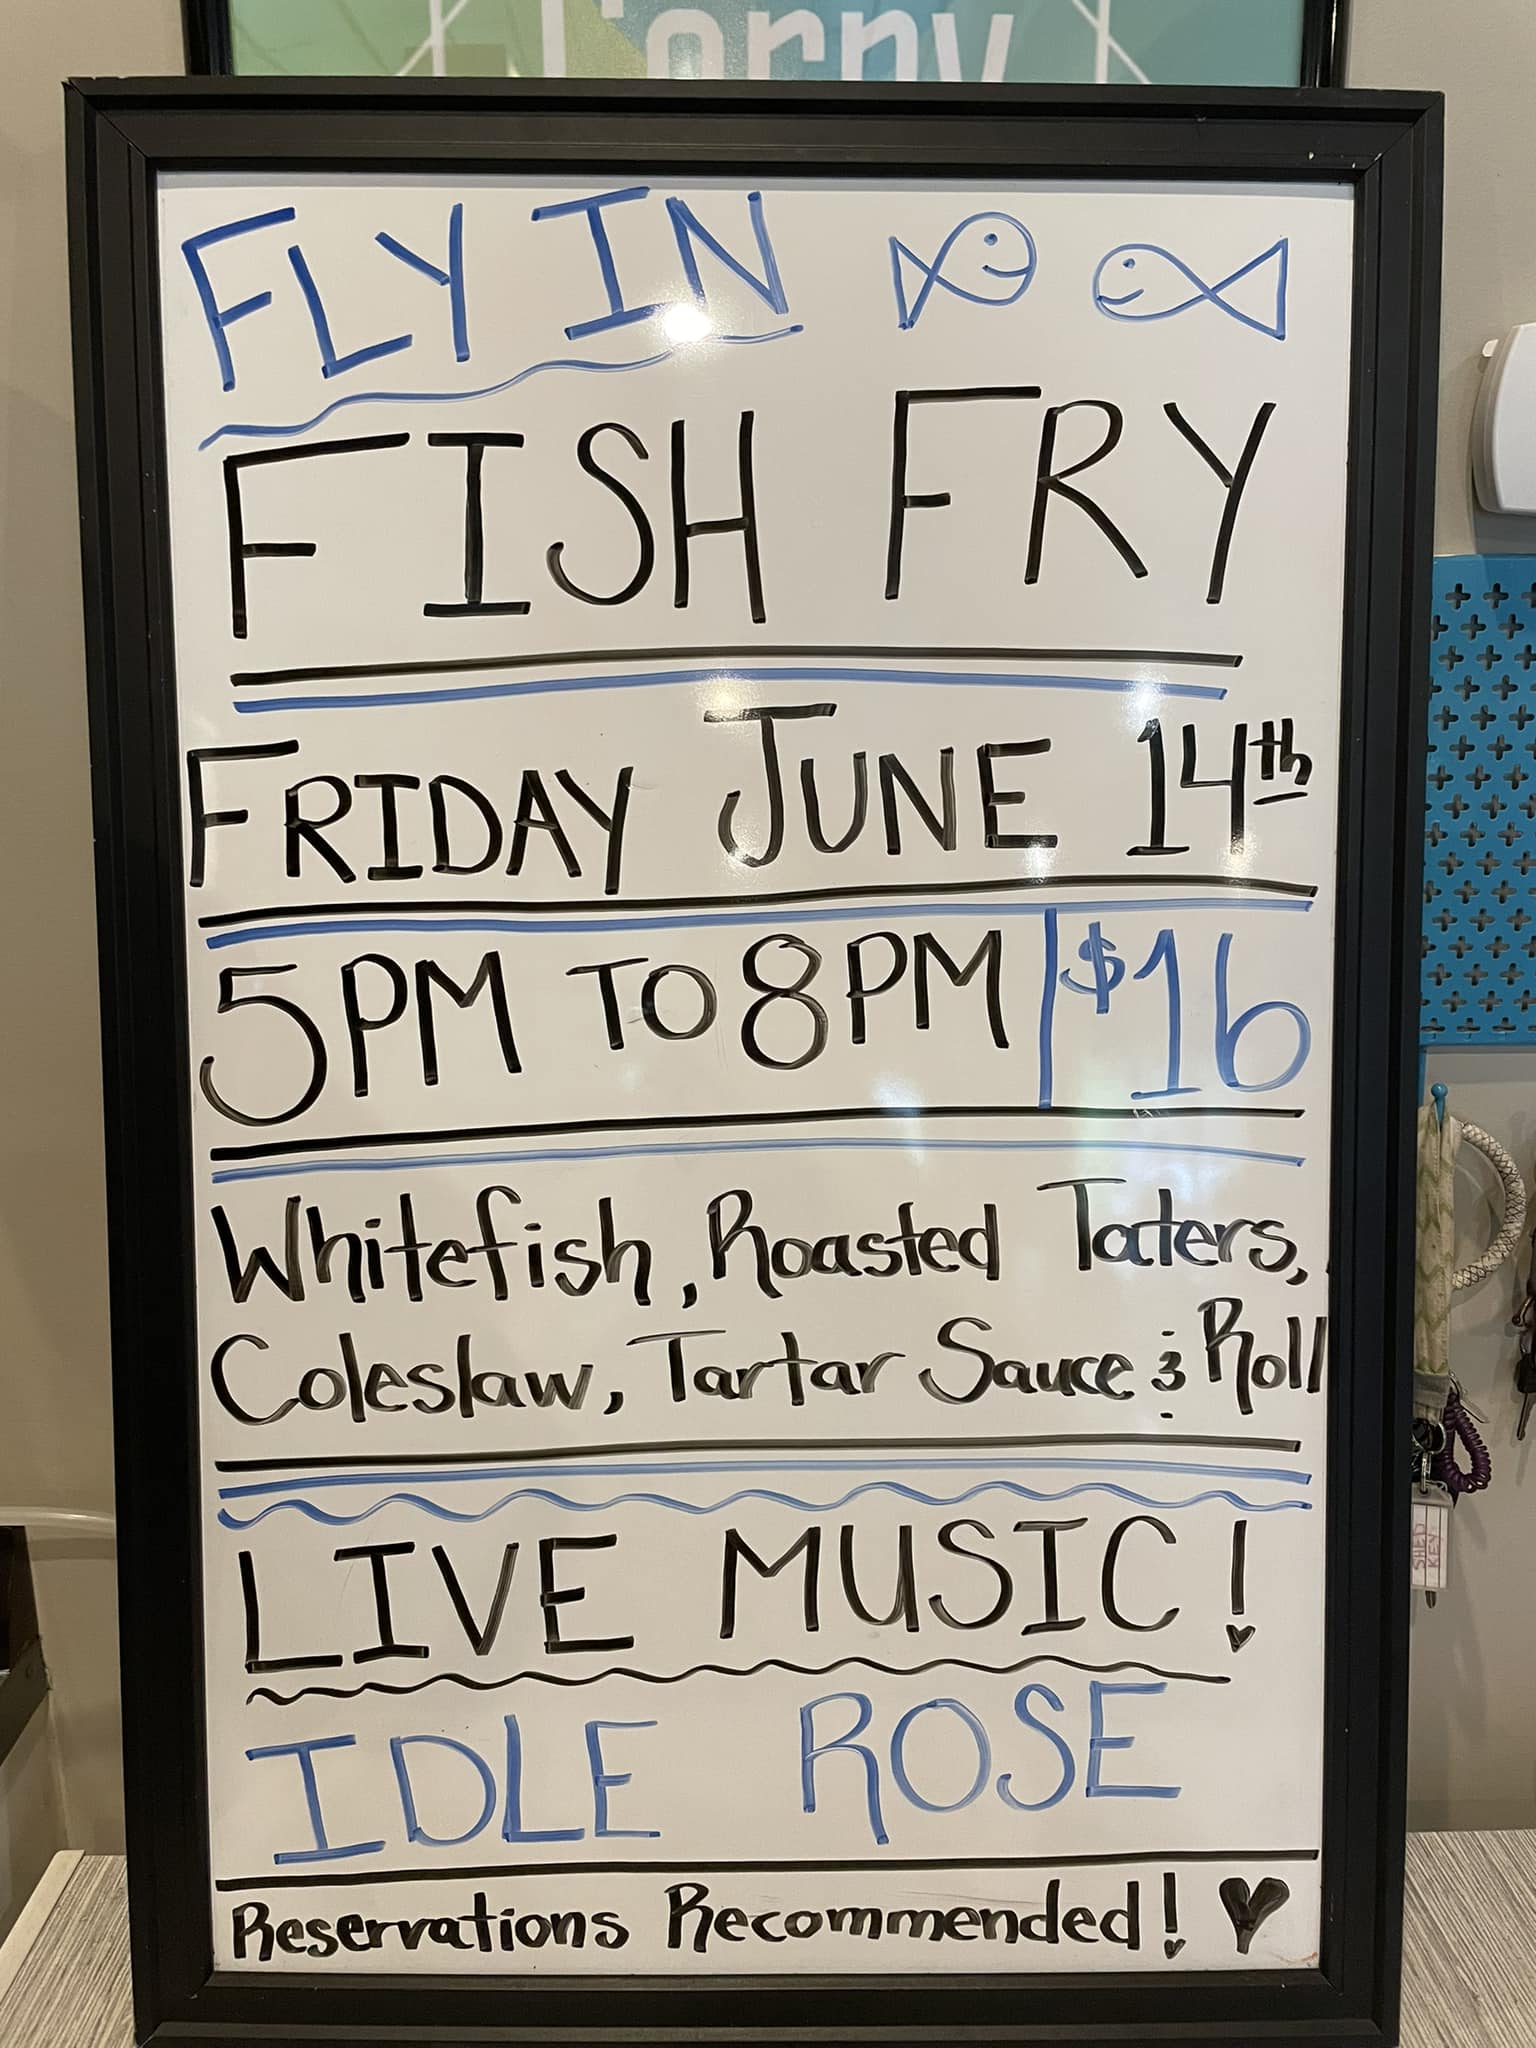 Corny
FLY IN
FISH FRY
FRIDAY JUNE 14th
5PM TO 8PM $16
Whitefish, Roasted Taters,
Coleslaw, Tartar Sauce & Roll
LIVE MUSIC!
IDLE ROSE
Reservations Recommended!
SHED
KEY